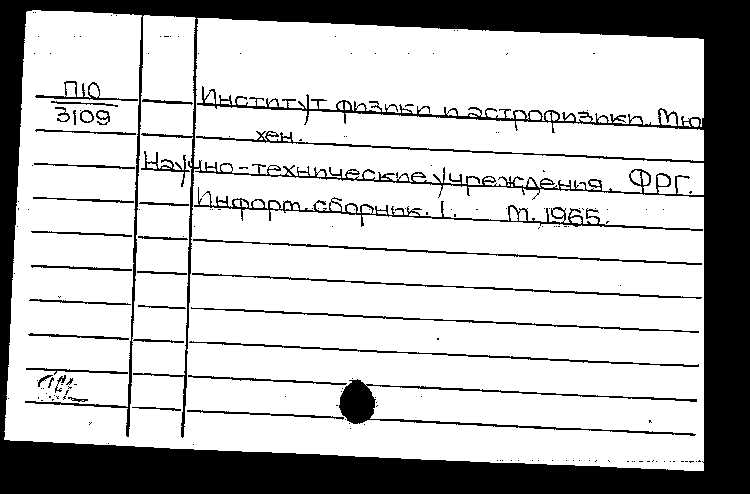 П10
3109
Институт физики и астрофизики. Мюн
хен.
Научно-технические учреждения. ФРГ.
Информ. сборник. 1. М., 1965.